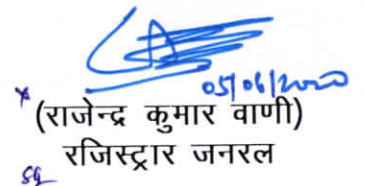 05/06/2020
(राजेन्द्र कुमार वाणी)
रजिस्ट्रार जनरल